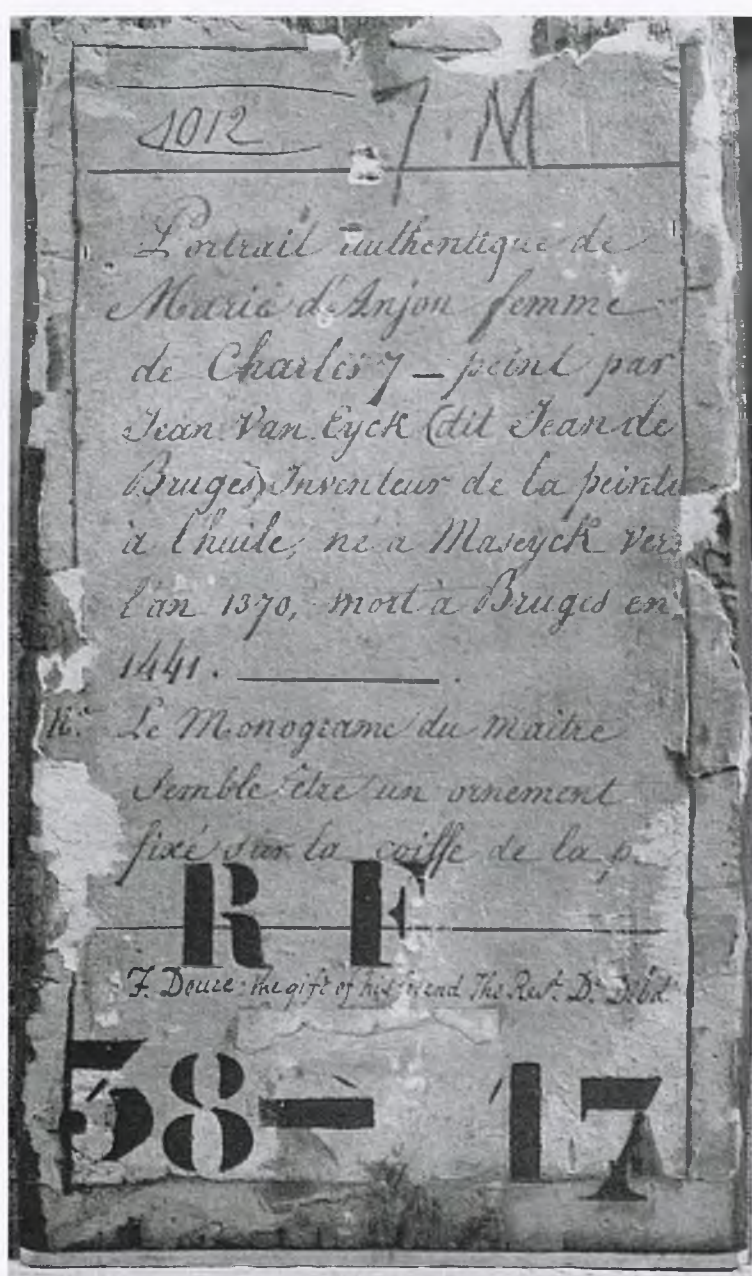 1012 7. M
Portrait authentique de
Marie d'Anjou femme
de Charles 7 — peint par
Jean Van Eyck (dit Jean de
Bruges) Inventeur de la
à l'huile, né a Maseyck vers
l'an 1370, mort à Bruges en
1441.
Le Monograme du maitre
Semble être un ornement
fixé sur la coiffe de la
R F
F. Douce: the gift of his friend The Revd. Dr.
38 — 17